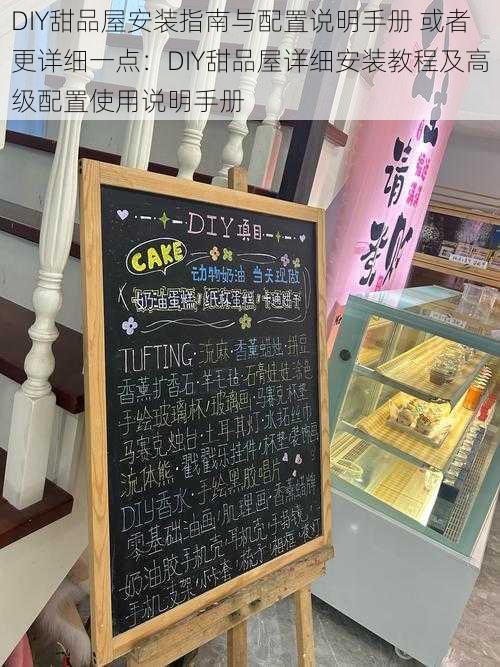 DIY甜品屋安装指南与配置说明手册 或者
更详细一点：DIY甜品屋详细安装教程及高
级配置使用说明手册
DIY项目
CAKE
动物奶油 当天现做
奶油蛋糕/纸杯蛋糕/卡通饼干
TUFTING·流麻·香薰蜡烛·拼豆
香薰扩香石·羊毛毡·石膏娃娃涂色
手绘玻璃杯/玻璃画·马赛克杯垫
马赛克烛台·土耳其灯·水拓丝巾
流体熊·戳戳乐挂件/杯垫/装饰画
DIY香水·手绘黑胶唱片
零基础油画/肌理画·香薰蜡牌
奶油胶手机壳/手持镜
手机支架/小卡套/梳子/相框/发灯
请登